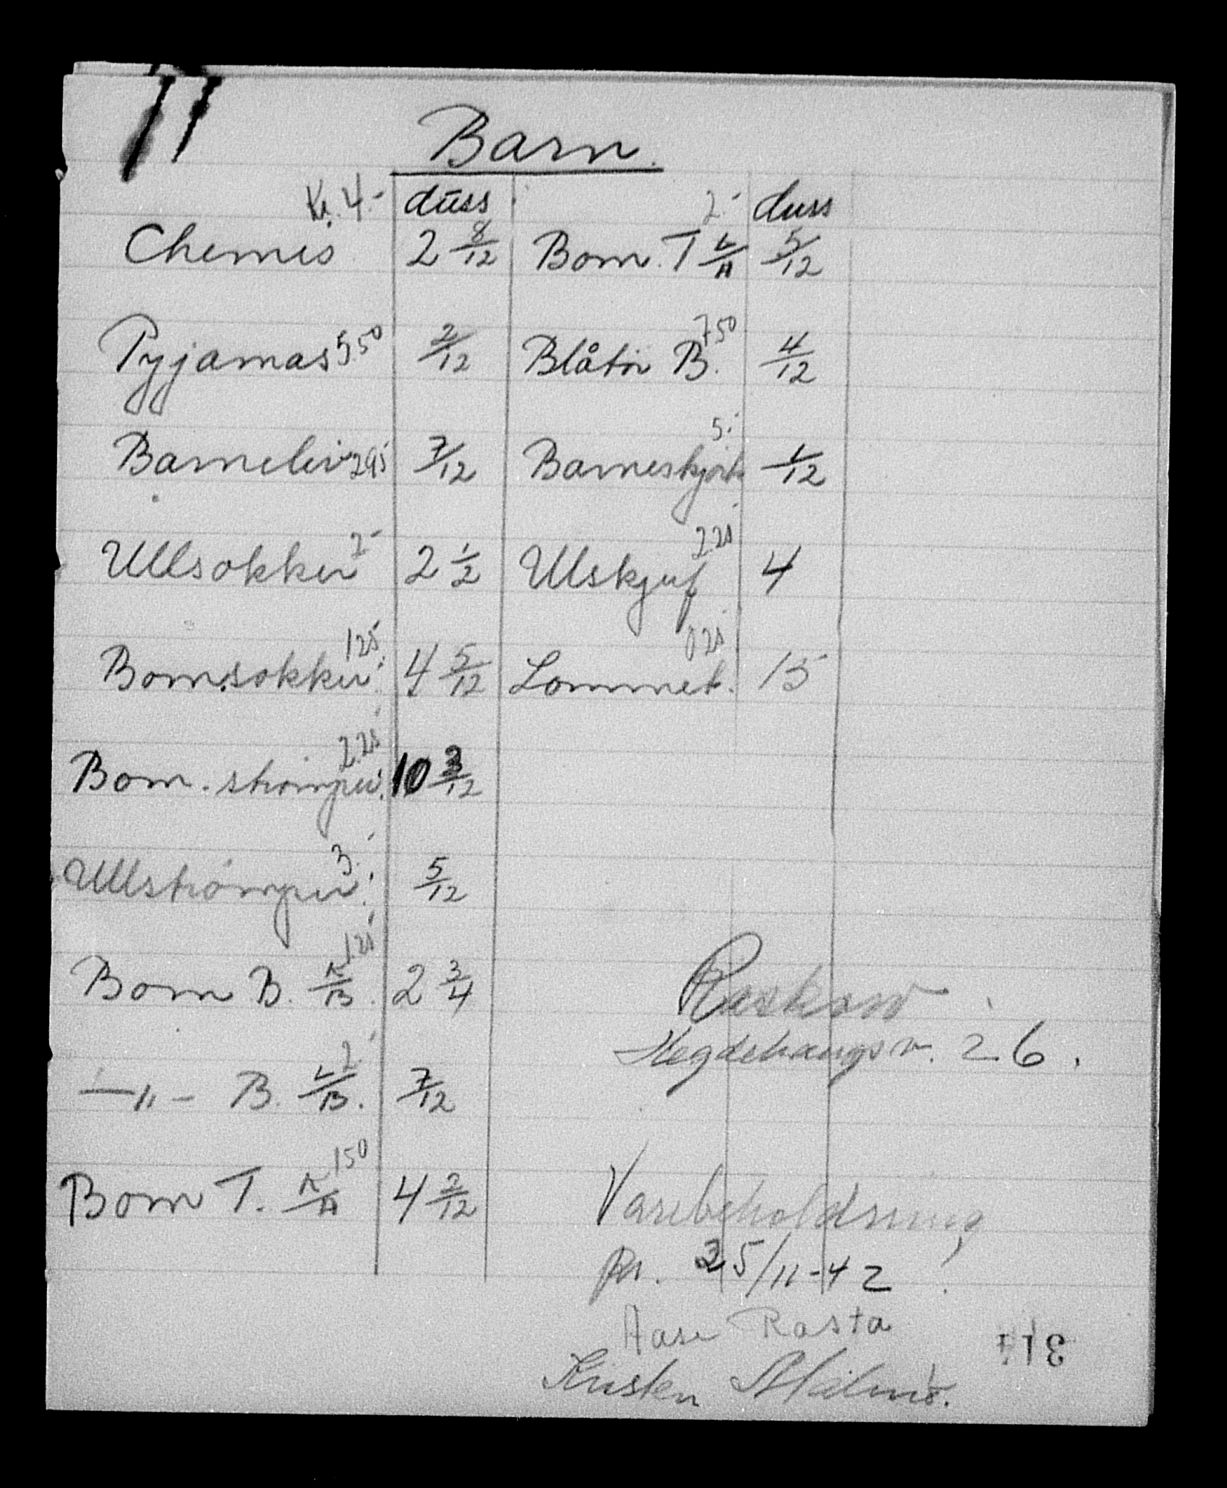 Barn.
Kr. 4.- duss 2- duss
Chemis 2 8/12 Bom. T L/A 5/12
Pyjamas 5.50 2/12 Blåtøi B. 7.50 4/12
Barneliv 2.95 7/12 Barneskjørt 5.- 1/12
Ullsokker 2- 2 1/2 Ulskjerf 2.25 4
Bom.sokker 1.25 4 5/12 Lommet. 0.25 15
Bom. strømper 2.25 10 3/12
Ullstrømper 3.- 5/12
Bom B. K/B. 1.25 2 3/4
—"- B. L/B. 2- 7/12
Bom T. K/A 1.50 4 2/12
Raskow
Hegdehaugsv. 26.
Varebeholdning
pr. 25/11-42
Aase Rasta
Kirsten